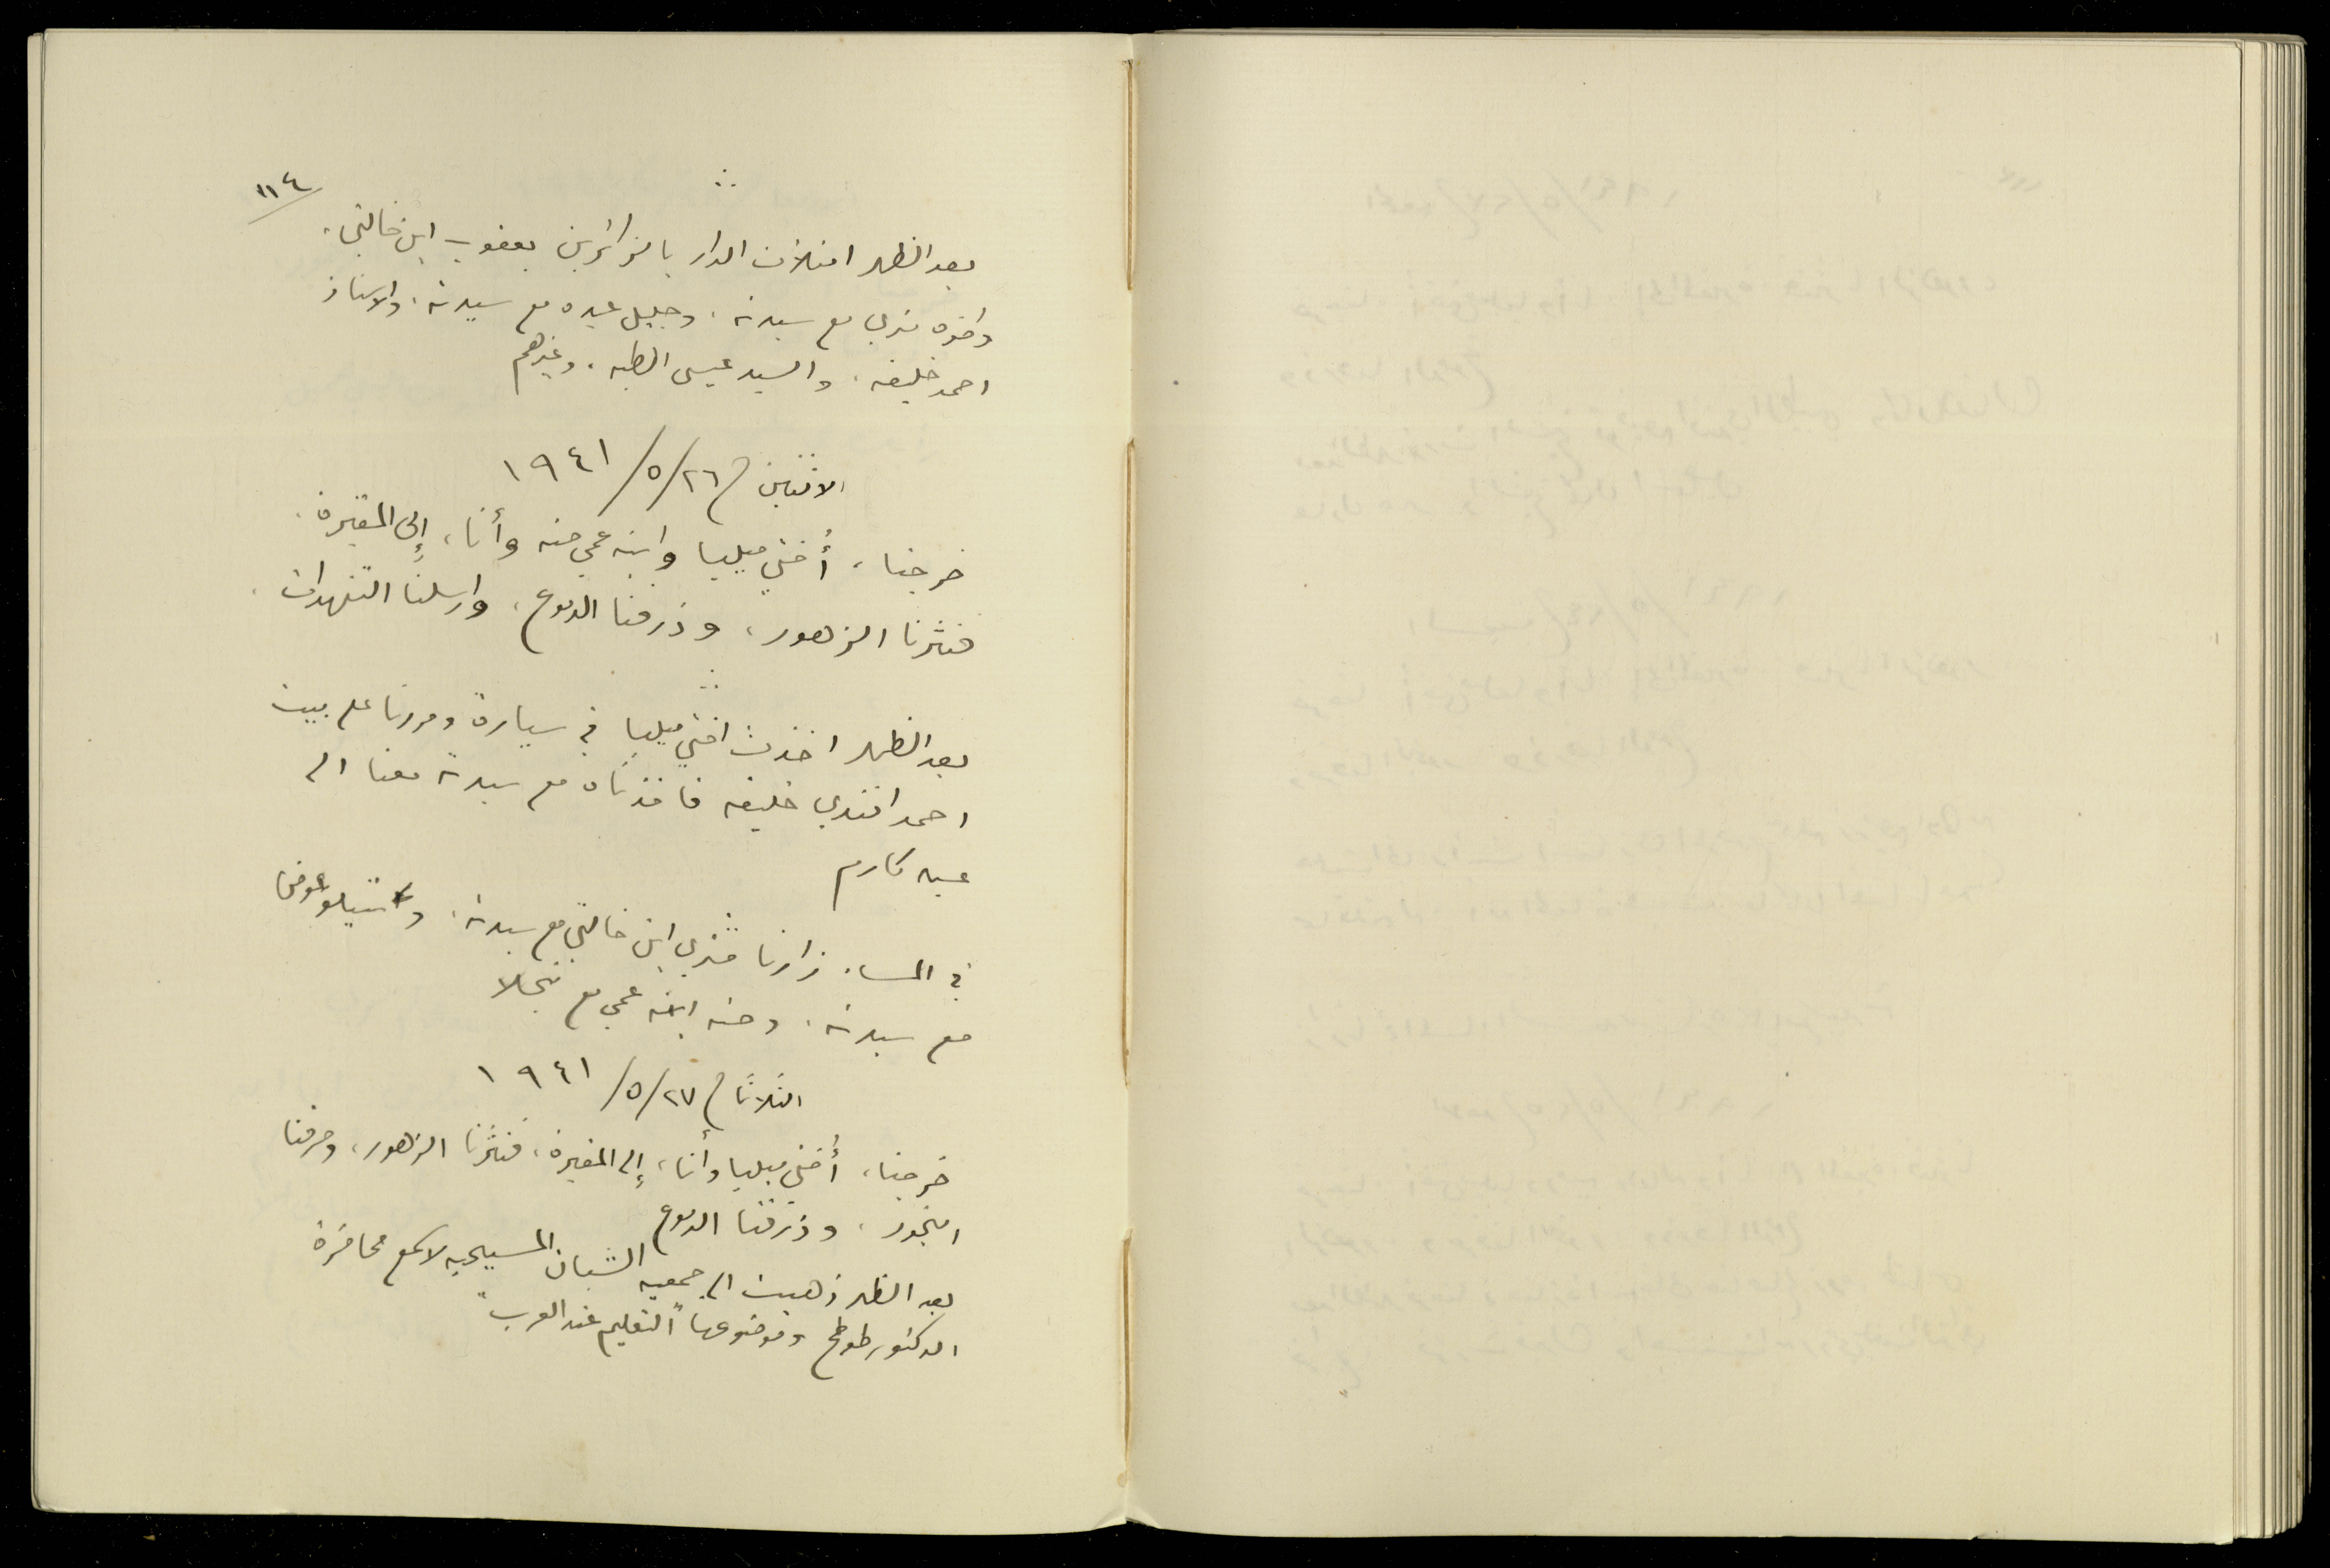 ١١٤
بعد الظهر امتلأت الدار بالزائرين يعقوب ابن خالتي،
واخوه متري مع سيدته، وجليل عبده مع سيدته، والاستاذ
احمد خليفه، والسيد عيسى الطبه، وغيرهم
الاثنين في ٢٦/٥/١٩٤١
خرجنا، أختي ميليا وابنه عمي حنه وأنا، إلى المقبرة،
فنثرنا الزهور، وذرفنا الدموع، وارسلنا التنهدات.
بعد الظهر اخذت اختي ميليا في سيارة ومررنا على بيت
احمد افندي خليفه فاخذناه مع سيدته معنا الى
عين كارم
في المساء زارنا متري ابن خالتي مع سيدته، و عوض
مع سيدته، وحنه ابنة عمي مع نجلا
الثلاثا في ٢٧/٥/١٩٤١
خرجنا، أختي ميليا وأنا، إلى المقبرة، فنثرنا الزهور، وحرقنا
البخور، وذرفنا الدموع
بعد الظهر ذهبت الى جمعيه الشبان المسيحيه لاسمع محاضرة
الدكتور طوطح وموضوعها "التعليم عند العرب"